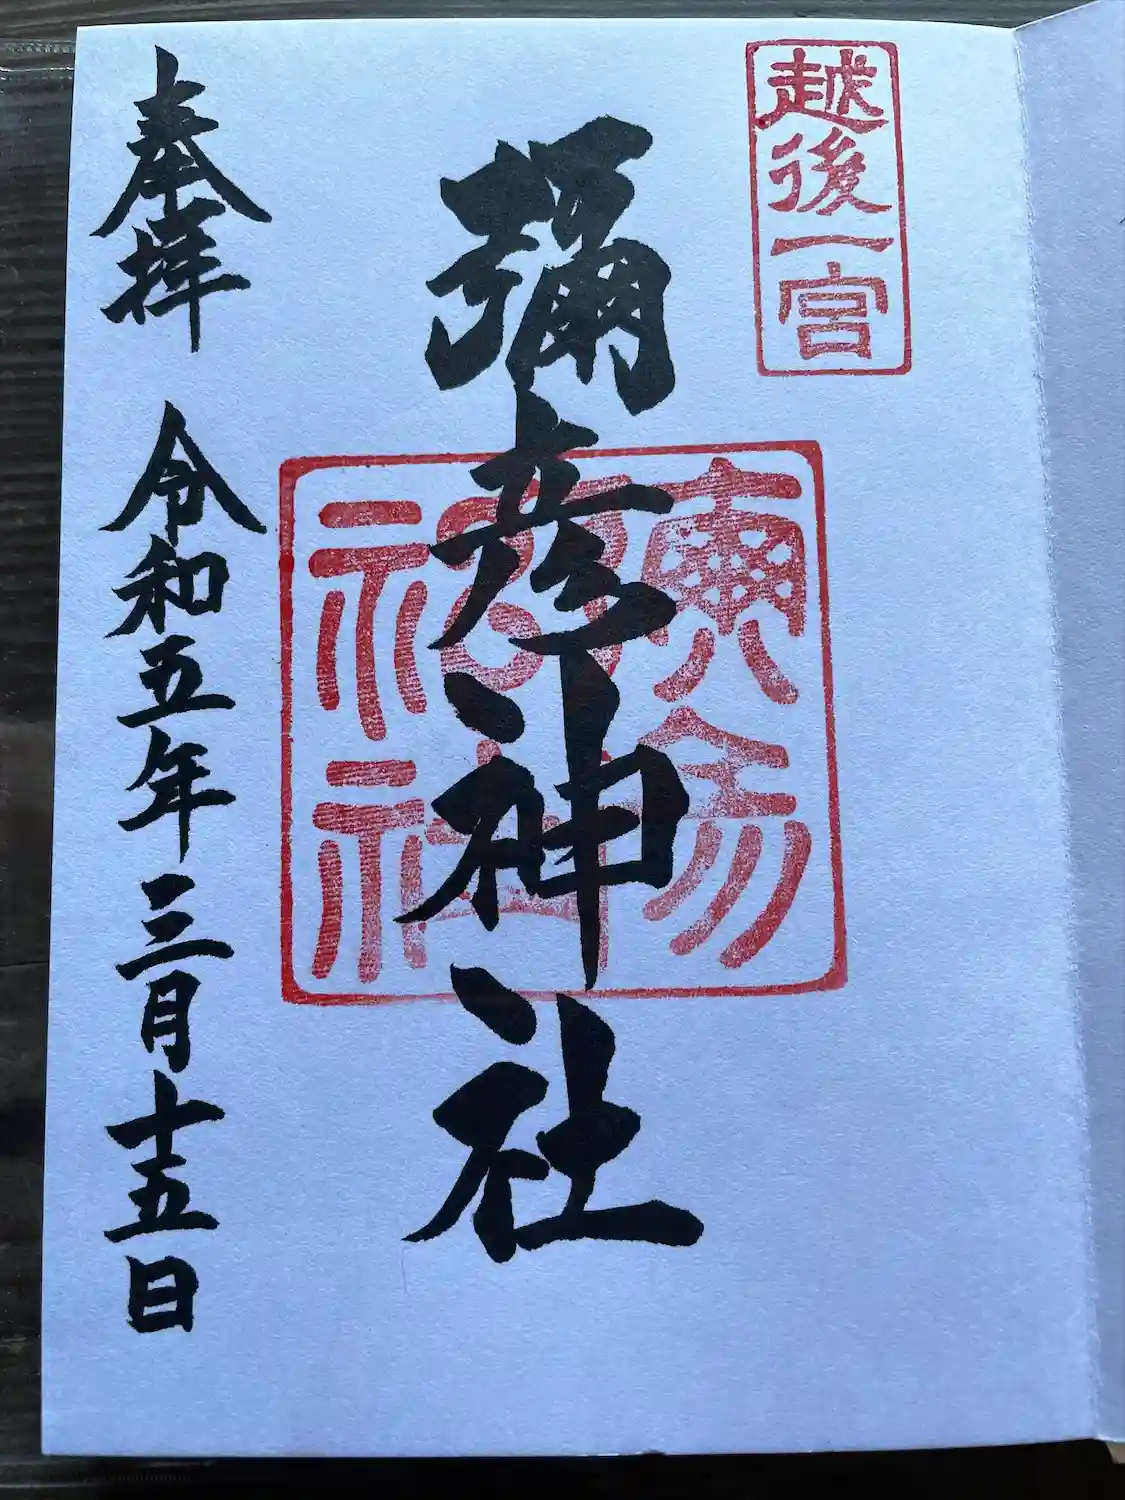 越後一宮
彌彦神社
奉拝 令和五年三月十五日